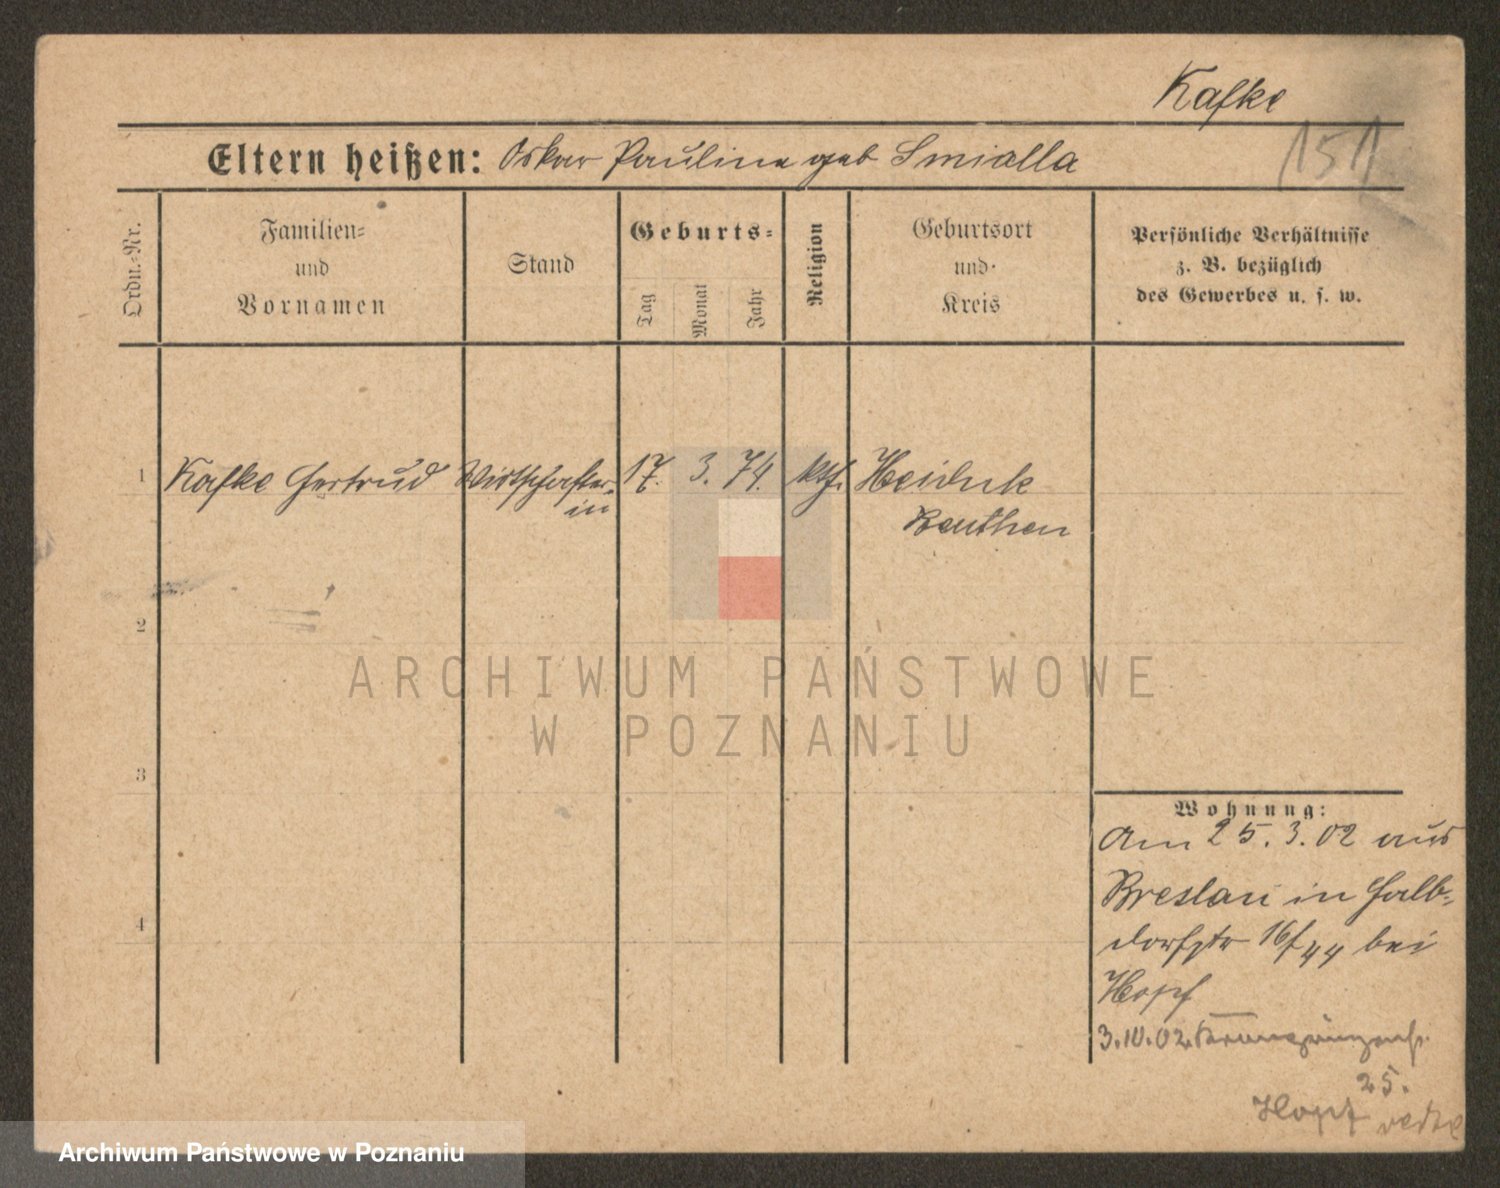 Kafke
151
Eltern heißen: Oskar Pauline geb Smialla
Ordn.-Nr.
Familien-
und
Vornamen
Stand
Geburts-
Tag
Monat
Jahr
Religion
Geburtsort
und
Kreis
Persönliche Verhältnisse
z. B. bezüglich
des Gewerbes u. s. w.
1 Kafke Gertrud Wirtschafter- 17. 3. 74. kth. Heiduk
in Beuthen
2
3
4
Wohnung:
Am 25.3.02 aus
Breslau in Halb-
dorfstr 16/44 bei
Hopf
3.10.02 Kronprinzenstr.
25.
Hopf
ARCHIWUM PAŃSTWOWE
W POZNANIU
Archiwum Państwowe w Poznaniu